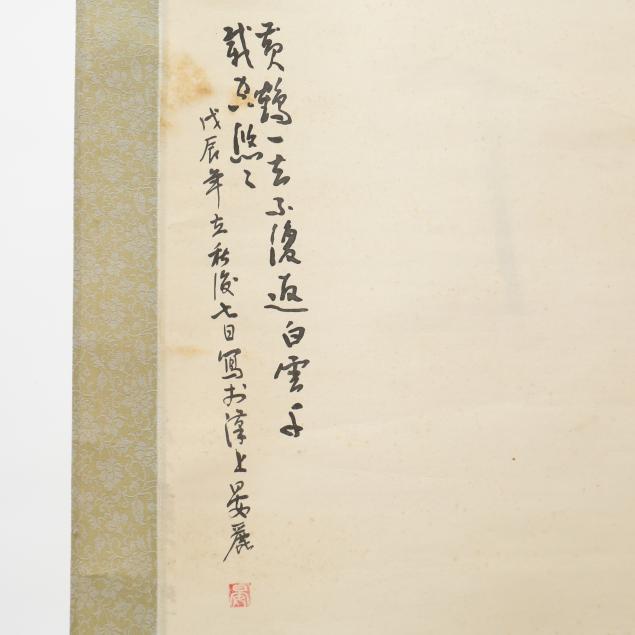 黄鶴一去不復返白雲千
載空悠々
戊辰年立秋後七日寫於漢上晏麗
晏